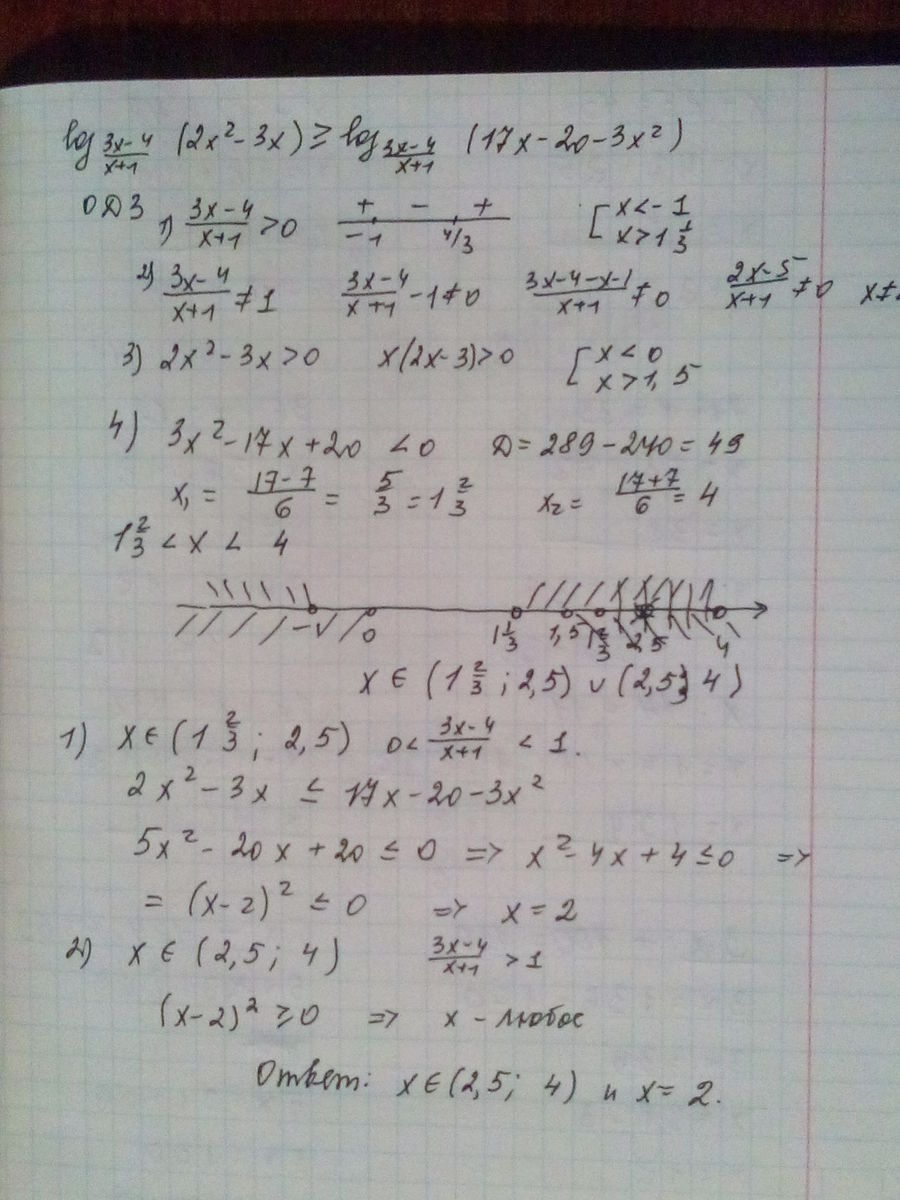 log_{\frac{3x-4}{x+1}} (2x² - 3x) ≥ log_{\frac{3x-4}{x+1}} (17x - 20 - 3x²)
ОДЗ 1) \frac{3x-4}{x+1} > 0 + - + -1 4/3 [ x < -1 x > 1\frac{1}{3}
2) \frac{3x-4}{x+1} ≠ 1 \frac{3x-4}{x+1} - 1 ≠ 0 \frac{3x-4-x-1}{x+1} ≠ 0 \frac{2x-5}{x+1} ≠ 0 x ≠
3) 2x² - 3x > 0 x(2x-3) > 0 [ x < 0 x > 1,5
4) 3x² - 17x + 20 < 0 D = 289 - 240 = 49
x₁ = \frac{17-7}{6} = \frac{5}{3} = 1\frac{2}{3} x₂ = \frac{17+7}{6} = 4
1\frac{2}{3} < x < 4
0 1\frac{1}{3} 1,5 1\frac{2}{3} 2,5 4
x ∈ (1\frac{2}{3} ; 2,5) ∪ (2,5; 4)
1) x ∈ (1\frac{2}{3} ; 2,5) 0 < \frac{3x-4}{x+1} < 1.
2x² - 3x ≤ 17x - 20 - 3x²
5x² - 20x + 20 ≤ 0 => x² - 4x + 4 ≤ 0 =>
= (x-2)² ≤ 0 => x = 2
2) x ∈ (2,5; 4) \frac{3x-4}{x+1} > 1
(x-2)² ≥ 0 => x - любое
Ответ: x ∈ (2,5; 4) и x = 2.